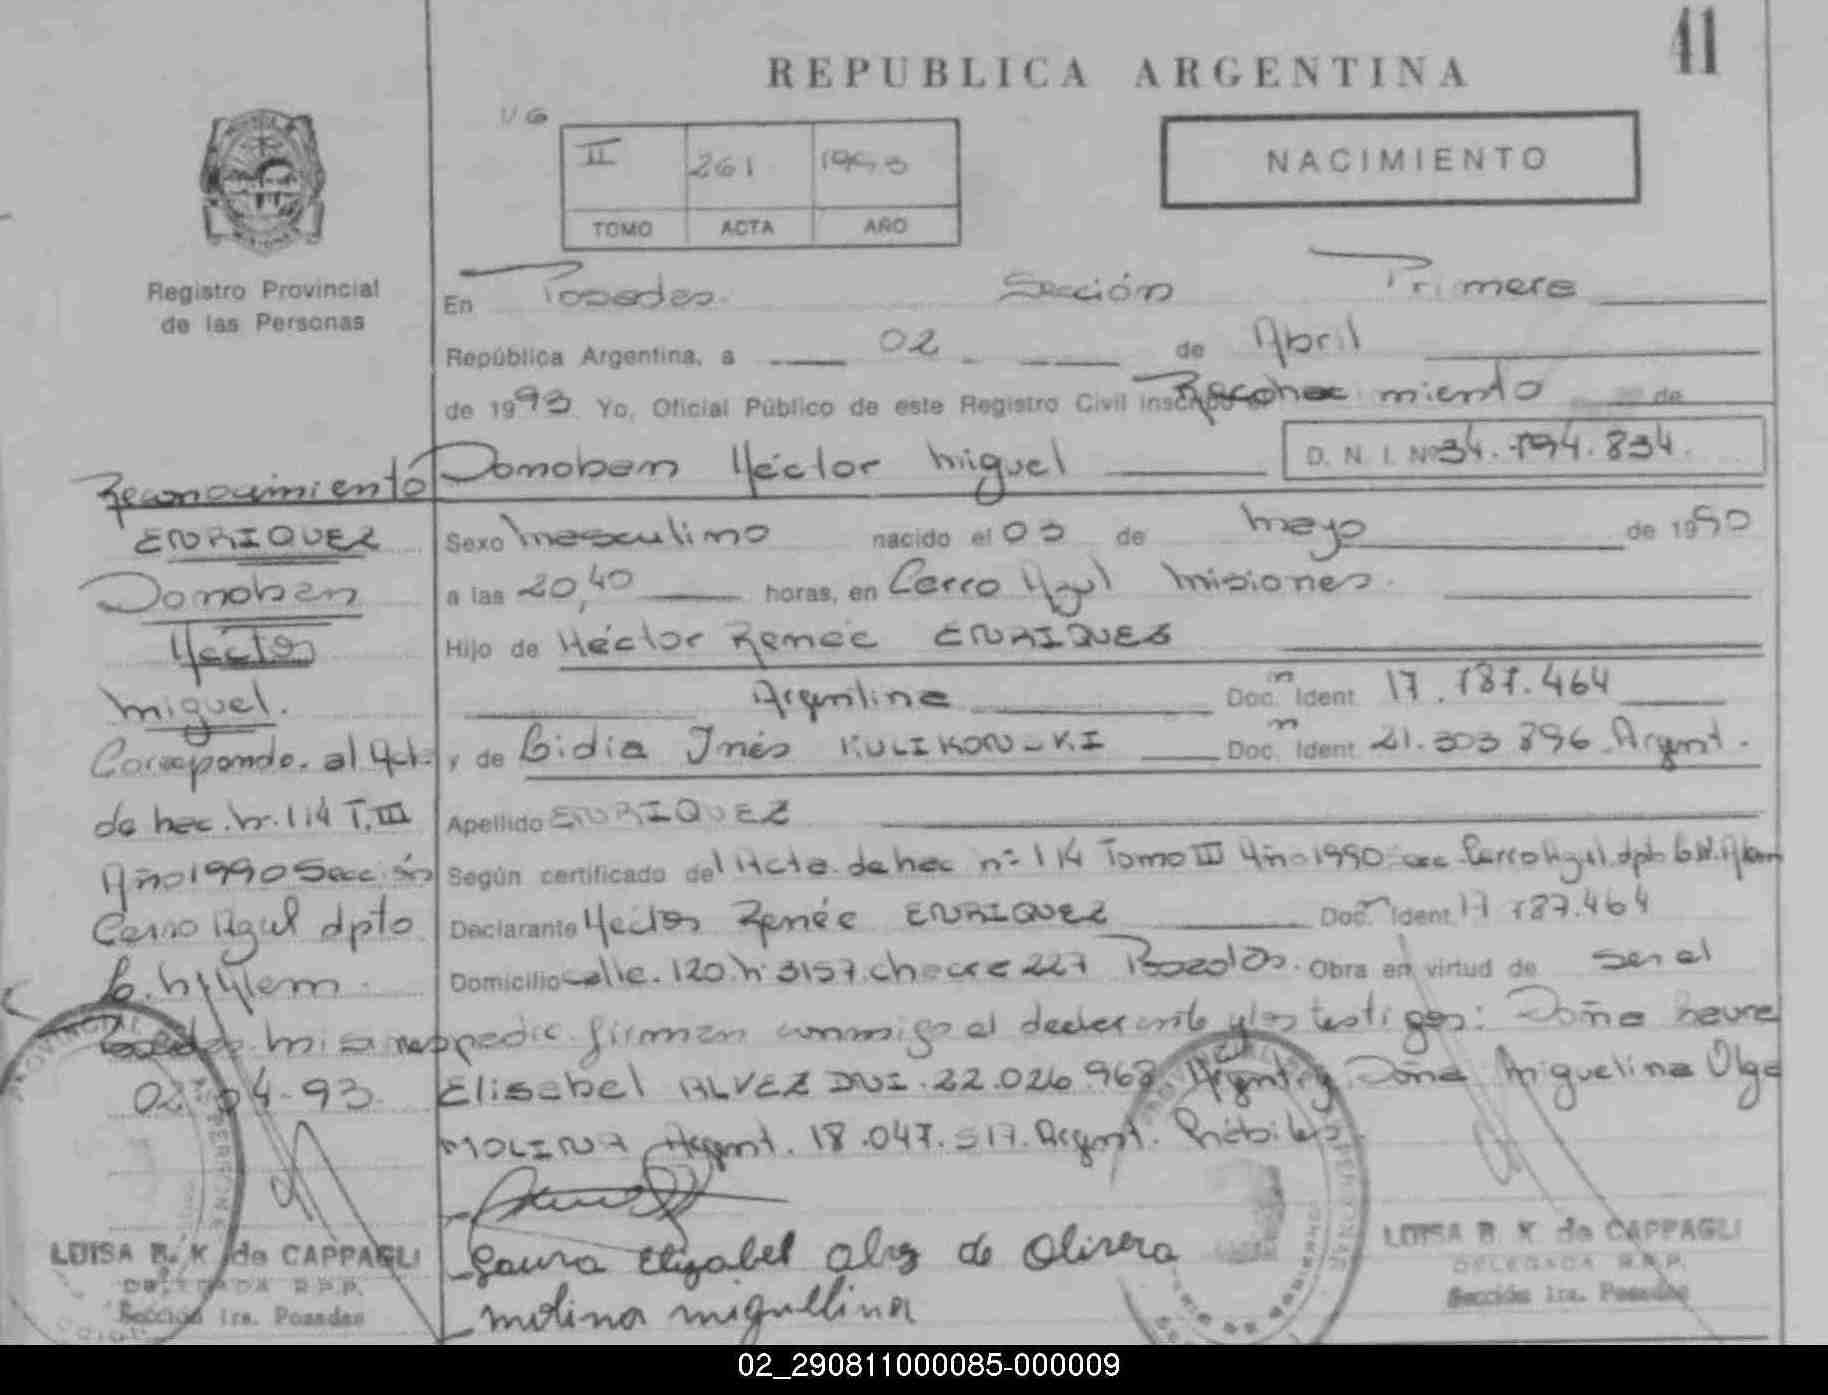 41
REPUBLICA ARGENTINA
II 261 1993
TOMO ACTA AÑO
NACIMIENTO
Registro Provincial
de las Personas
En Posadas. Sección Primera
República Argentina, a 02 de Abril
de 1993 Yo, Oficial Público de este Registro Civil inscribo el Reconocimiento de
Donoban Héctor Miguel D. N. I. Nº 34.794.834.
Reconocimiento
ENRIQUEZ
Donoban
Héctor
Miguel.
Corresponde al Acta
de nac. nº 114 T. III
Año 1990 Sección
Cerro Azul dpto
L. N. Alem.
Posadas Misiones
02-04-93
Sexo Masculino nacido el 03 de Mayo de 1990
a las 20,40 horas, en Cerro Azul Misiones.
Hijo de Héctor Renée ENRIQUEZ
Argentina Doc. Ident. 17.787.464
y de Lidia Inés KULIKOWSKI Doc. Ident. 21.303.896 Argent.
Apellido ENRIQUEZ
Según certificado del Acta de nac nº 114 Tomo III Año 1990 sec. Cerro Azul dpto L.N. Alem
Declarante Héctor Renée ENRIQUEZ Doc. Ident. 17.787.464
Domicilio calle 120 nº 3157 chacra 227 Posadas. Obra en virtud de ser el
padre firman conmigo el declarante y los testigos: Doña Laura
Elisabel ALVEZ DNI. 22.026.963 Argent. y Doña Miguelina Olga
MOLINA Argent. 18.047.517. Argent. hábiles
Laura Elizabel Alvez de Olivera
molina miguelina
LUISA B. K de CAPPAGLI
DELEGADA R.P.P.
Sección 1ra. Posadas
LUISA B. K de CAPPAGLI
DELEGADA R.P.P.
Sección 1ra. Posadas
02_290811000085-000009